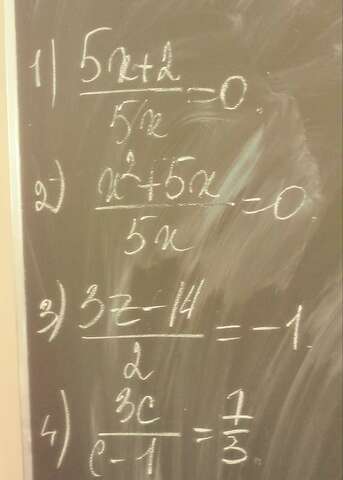 1) (5x+2)/(5x) = 0.
2) (x²+5x)/(5x) = 0.
3) (3z-14)/2 = -1.
4) (3c)/(c-1) = 1/3.